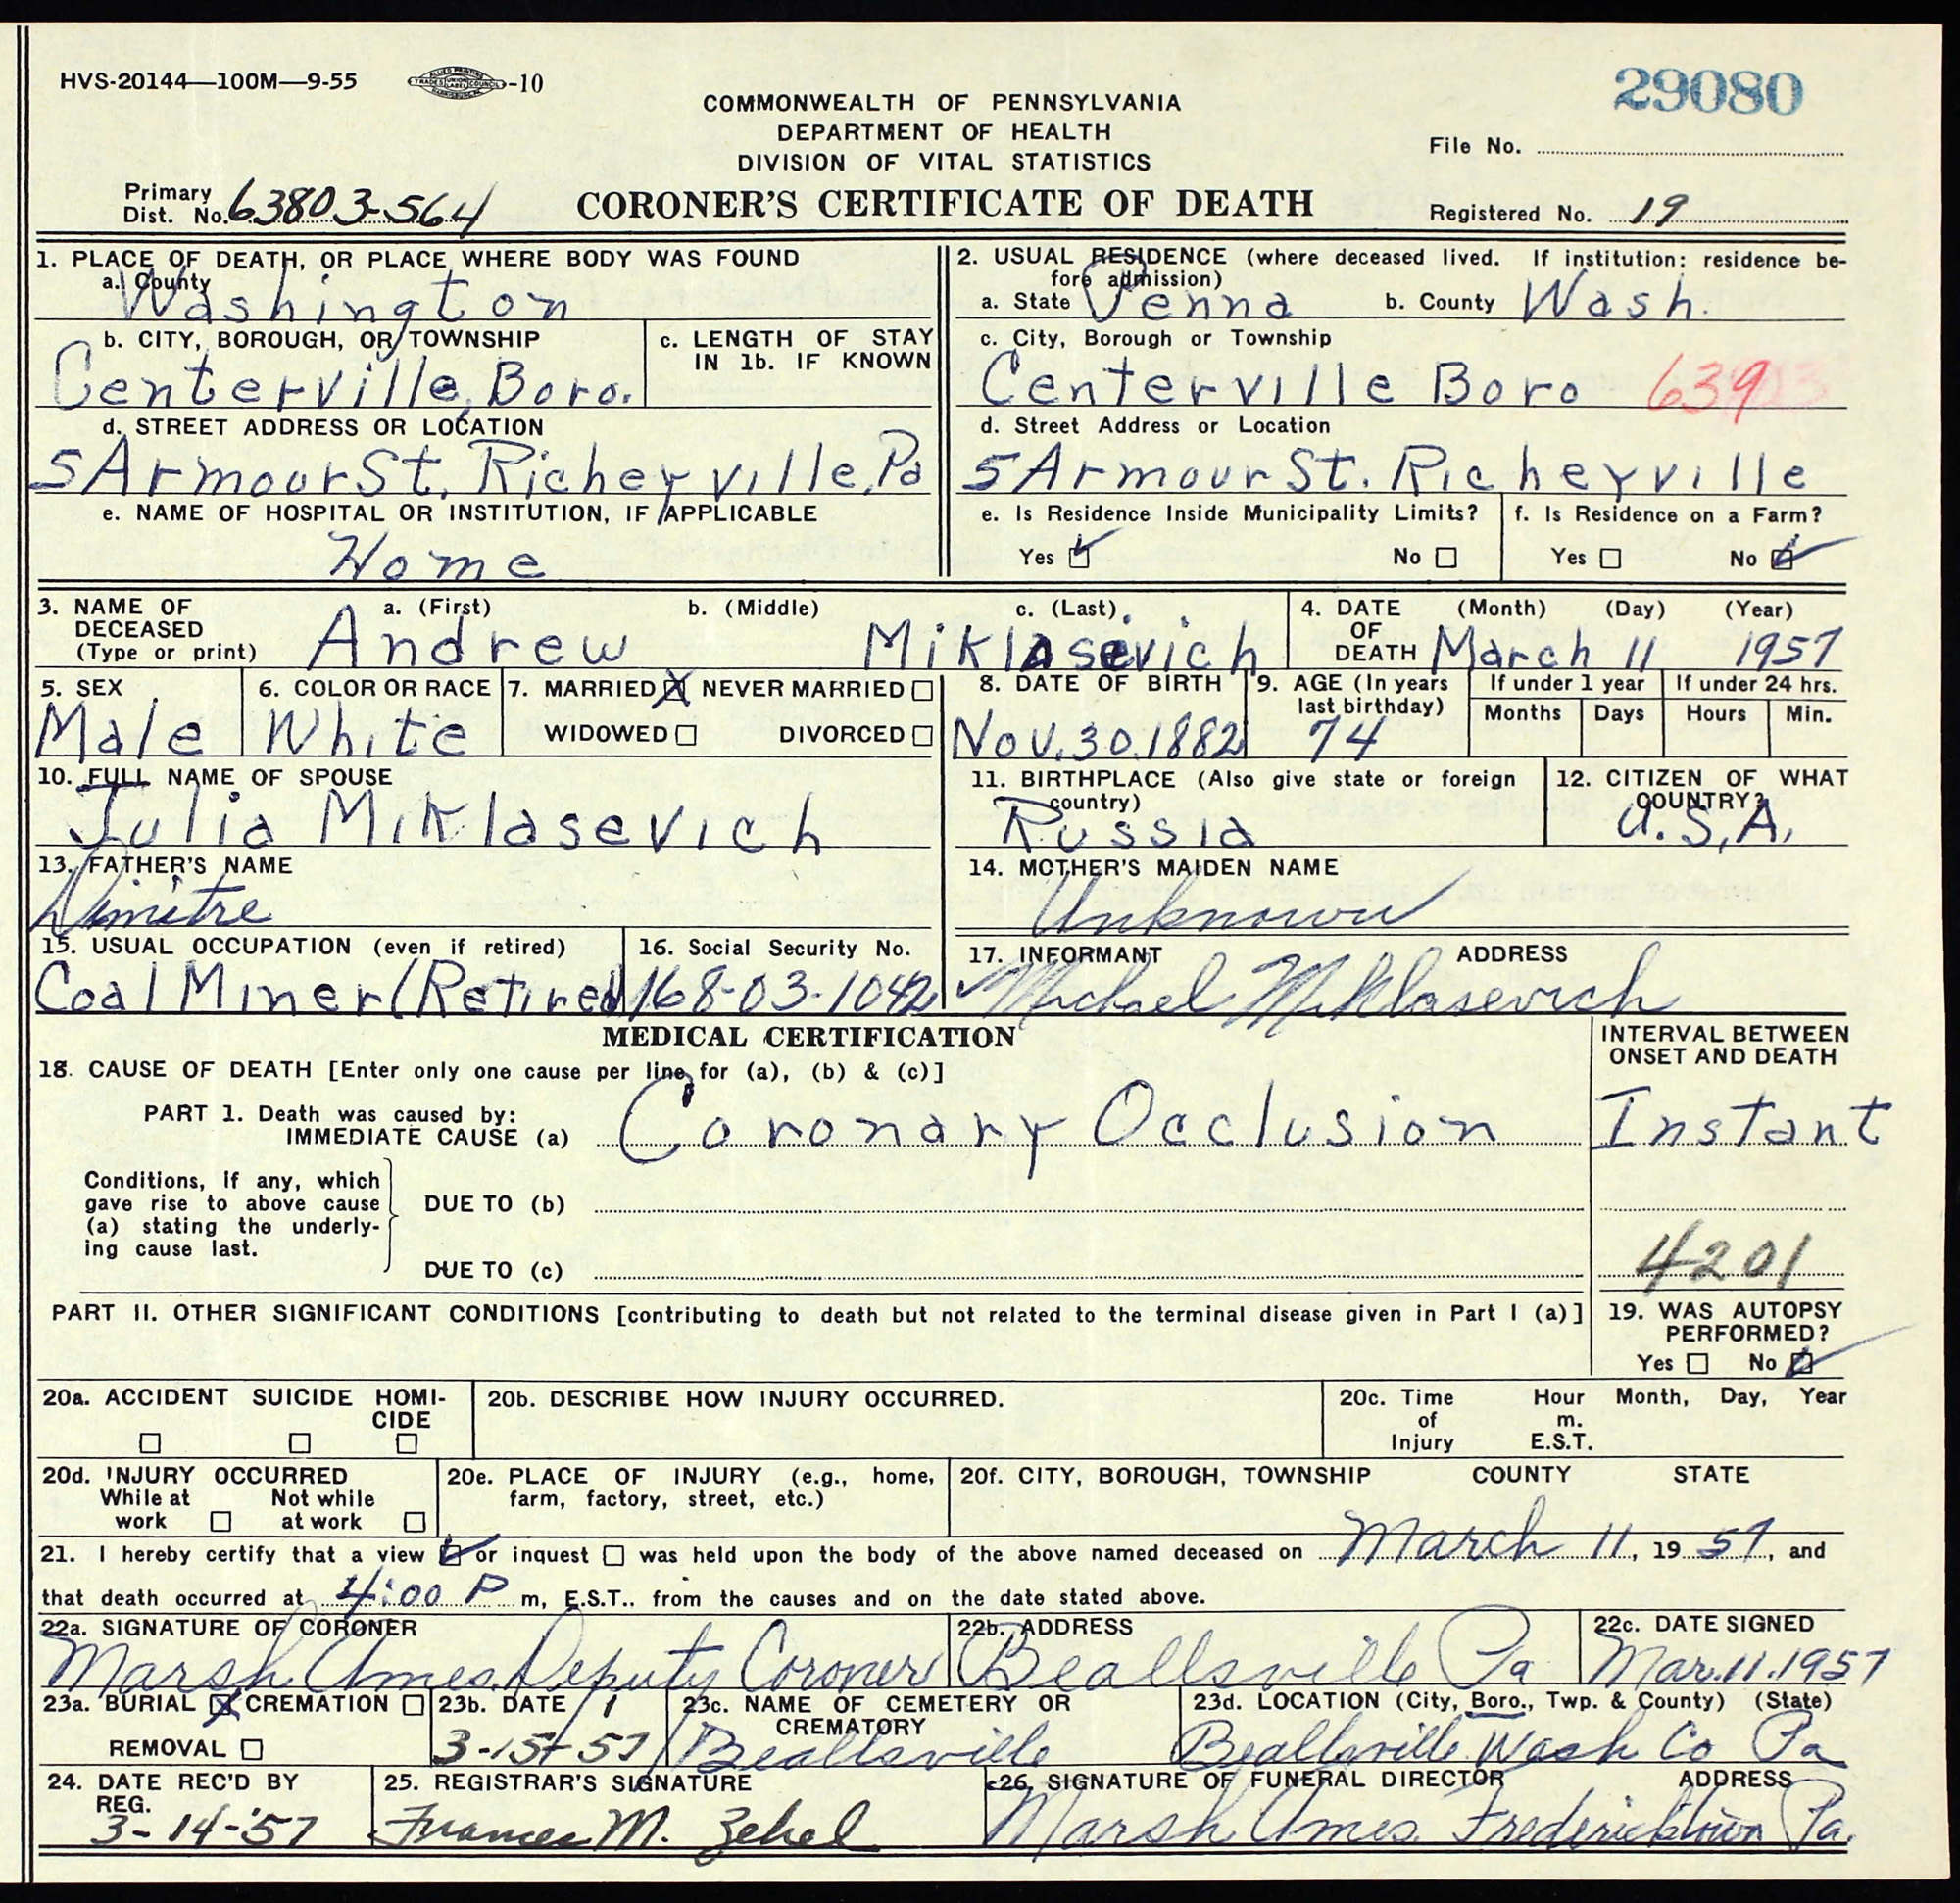 HVS-20144—100M—9-55 -10
29080
COMMONWEALTH OF PENNSYLVANIA
DEPARTMENT OF HEALTH
DIVISION OF VITAL STATISTICS
File No.
Primary Dist. No. 63803-564
CORONER'S CERTIFICATE OF DEATH
Registered No. 19
1. PLACE OF DEATH, OR PLACE WHERE BODY WAS FOUND
a. County
Washington
b. CITY, BOROUGH, OR TOWNSHIP
Centerville, Boro.
c. LENGTH OF STAY
IN 1b. IF KNOWN
d. STREET ADDRESS OR LOCATION
5 Armour St. Richeyville, Pa
e. NAME OF HOSPITAL OR INSTITUTION, IF APPLICABLE
Home
2. USUAL RESIDENCE (where deceased lived. If institution: residence be-
fore admission)
a. State Penna b. County Wash.
c. City, Borough or Township
Centerville Boro 639
d. Street Address or Location
5 Armour St. Richeyville
e. Is Residence Inside Municipality Limits?
Yes No
f. Is Residence on a Farm?
Yes No
3. NAME OF DECEASED (Type or print)
a. (First) b. (Middle) c. (Last)
Andrew Miklasevich
4. DATE OF DEATH (Month) (Day) (Year)
March 11 1957
5. SEX
Male
6. COLOR OR RACE
White
7. MARRIED X NEVER MARRIED
WIDOWED DIVORCED
8. DATE OF BIRTH
Nov. 30. 1882
9. AGE (In years
last birthday)
74
If under 1 year
Months Days
If under 24 hrs.
Hours Min.
10. FULL NAME OF SPOUSE
Julia Miklasevich
11. BIRTHPLACE (Also give state or foreign
country)
Russia
12. CITIZEN OF WHAT
COUNTRY?
U.S.A.
13. FATHER'S NAME
Dimitre
14. MOTHER'S MAIDEN NAME
Unknown
15. USUAL OCCUPATION (even if retired)
Coal Miner (Retired
16. Social Security No.
168-03-1042
17. INFORMANT ADDRESS
Michael Miklasevich
MEDICAL CERTIFICATION
INTERVAL BETWEEN
ONSET AND DEATH
18. CAUSE OF DEATH [Enter only one cause per line for (a), (b) & (c)]
PART 1. Death was caused by:
IMMEDIATE CAUSE (a) Coronary Occlusion Instant
Conditions, if any, which
gave rise to above cause
(a) stating the underly-
ing cause last.
DUE TO (b)
DUE TO (c)
4201
PART II. OTHER SIGNIFICANT CONDITIONS [contributing to death but not related to the terminal disease given in Part I (a)]
19. WAS AUTOPSY
PERFORMED?
Yes No
20a. ACCIDENT SUICIDE HOMI-
CIDE
20b. DESCRIBE HOW INJURY OCCURRED.
20c. Time of Injury Hour m. E.S.T. Month, Day, Year
20d. INJURY OCCURRED
While at work Not while at work
20e. PLACE OF INJURY (e.g., home,
farm, factory, street, etc.)
20f. CITY, BOROUGH, TOWNSHIP COUNTY STATE
21. I hereby certify that a view or inquest was held upon the body of the above named deceased on March 11, 19 57, and
that death occurred at 4:00 P m, E.S.T.. from the causes and on the date stated above.
22a. SIGNATURE OF CORONER
Marsh Ames Deputy Coroner
22b. ADDRESS
Beallsville Pa
22c. DATE SIGNED
Mar. 11. 1957
23a. BURIAL X CREMATION
REMOVAL
23b. DATE
3-15-57
23c. NAME OF CEMETERY OR
CREMATORY
Beallsville
23d. LOCATION (City, Boro., Twp. & County) (State)
Beallsville Wash Co Pa
24. DATE REC'D BY
REG.
3-14-'57
25. REGISTRAR'S SIGNATURE
Frances M. Zekel
26. SIGNATURE OF FUNERAL DIRECTOR ADDRESS
Marsh Ames Fredericktown Pa.